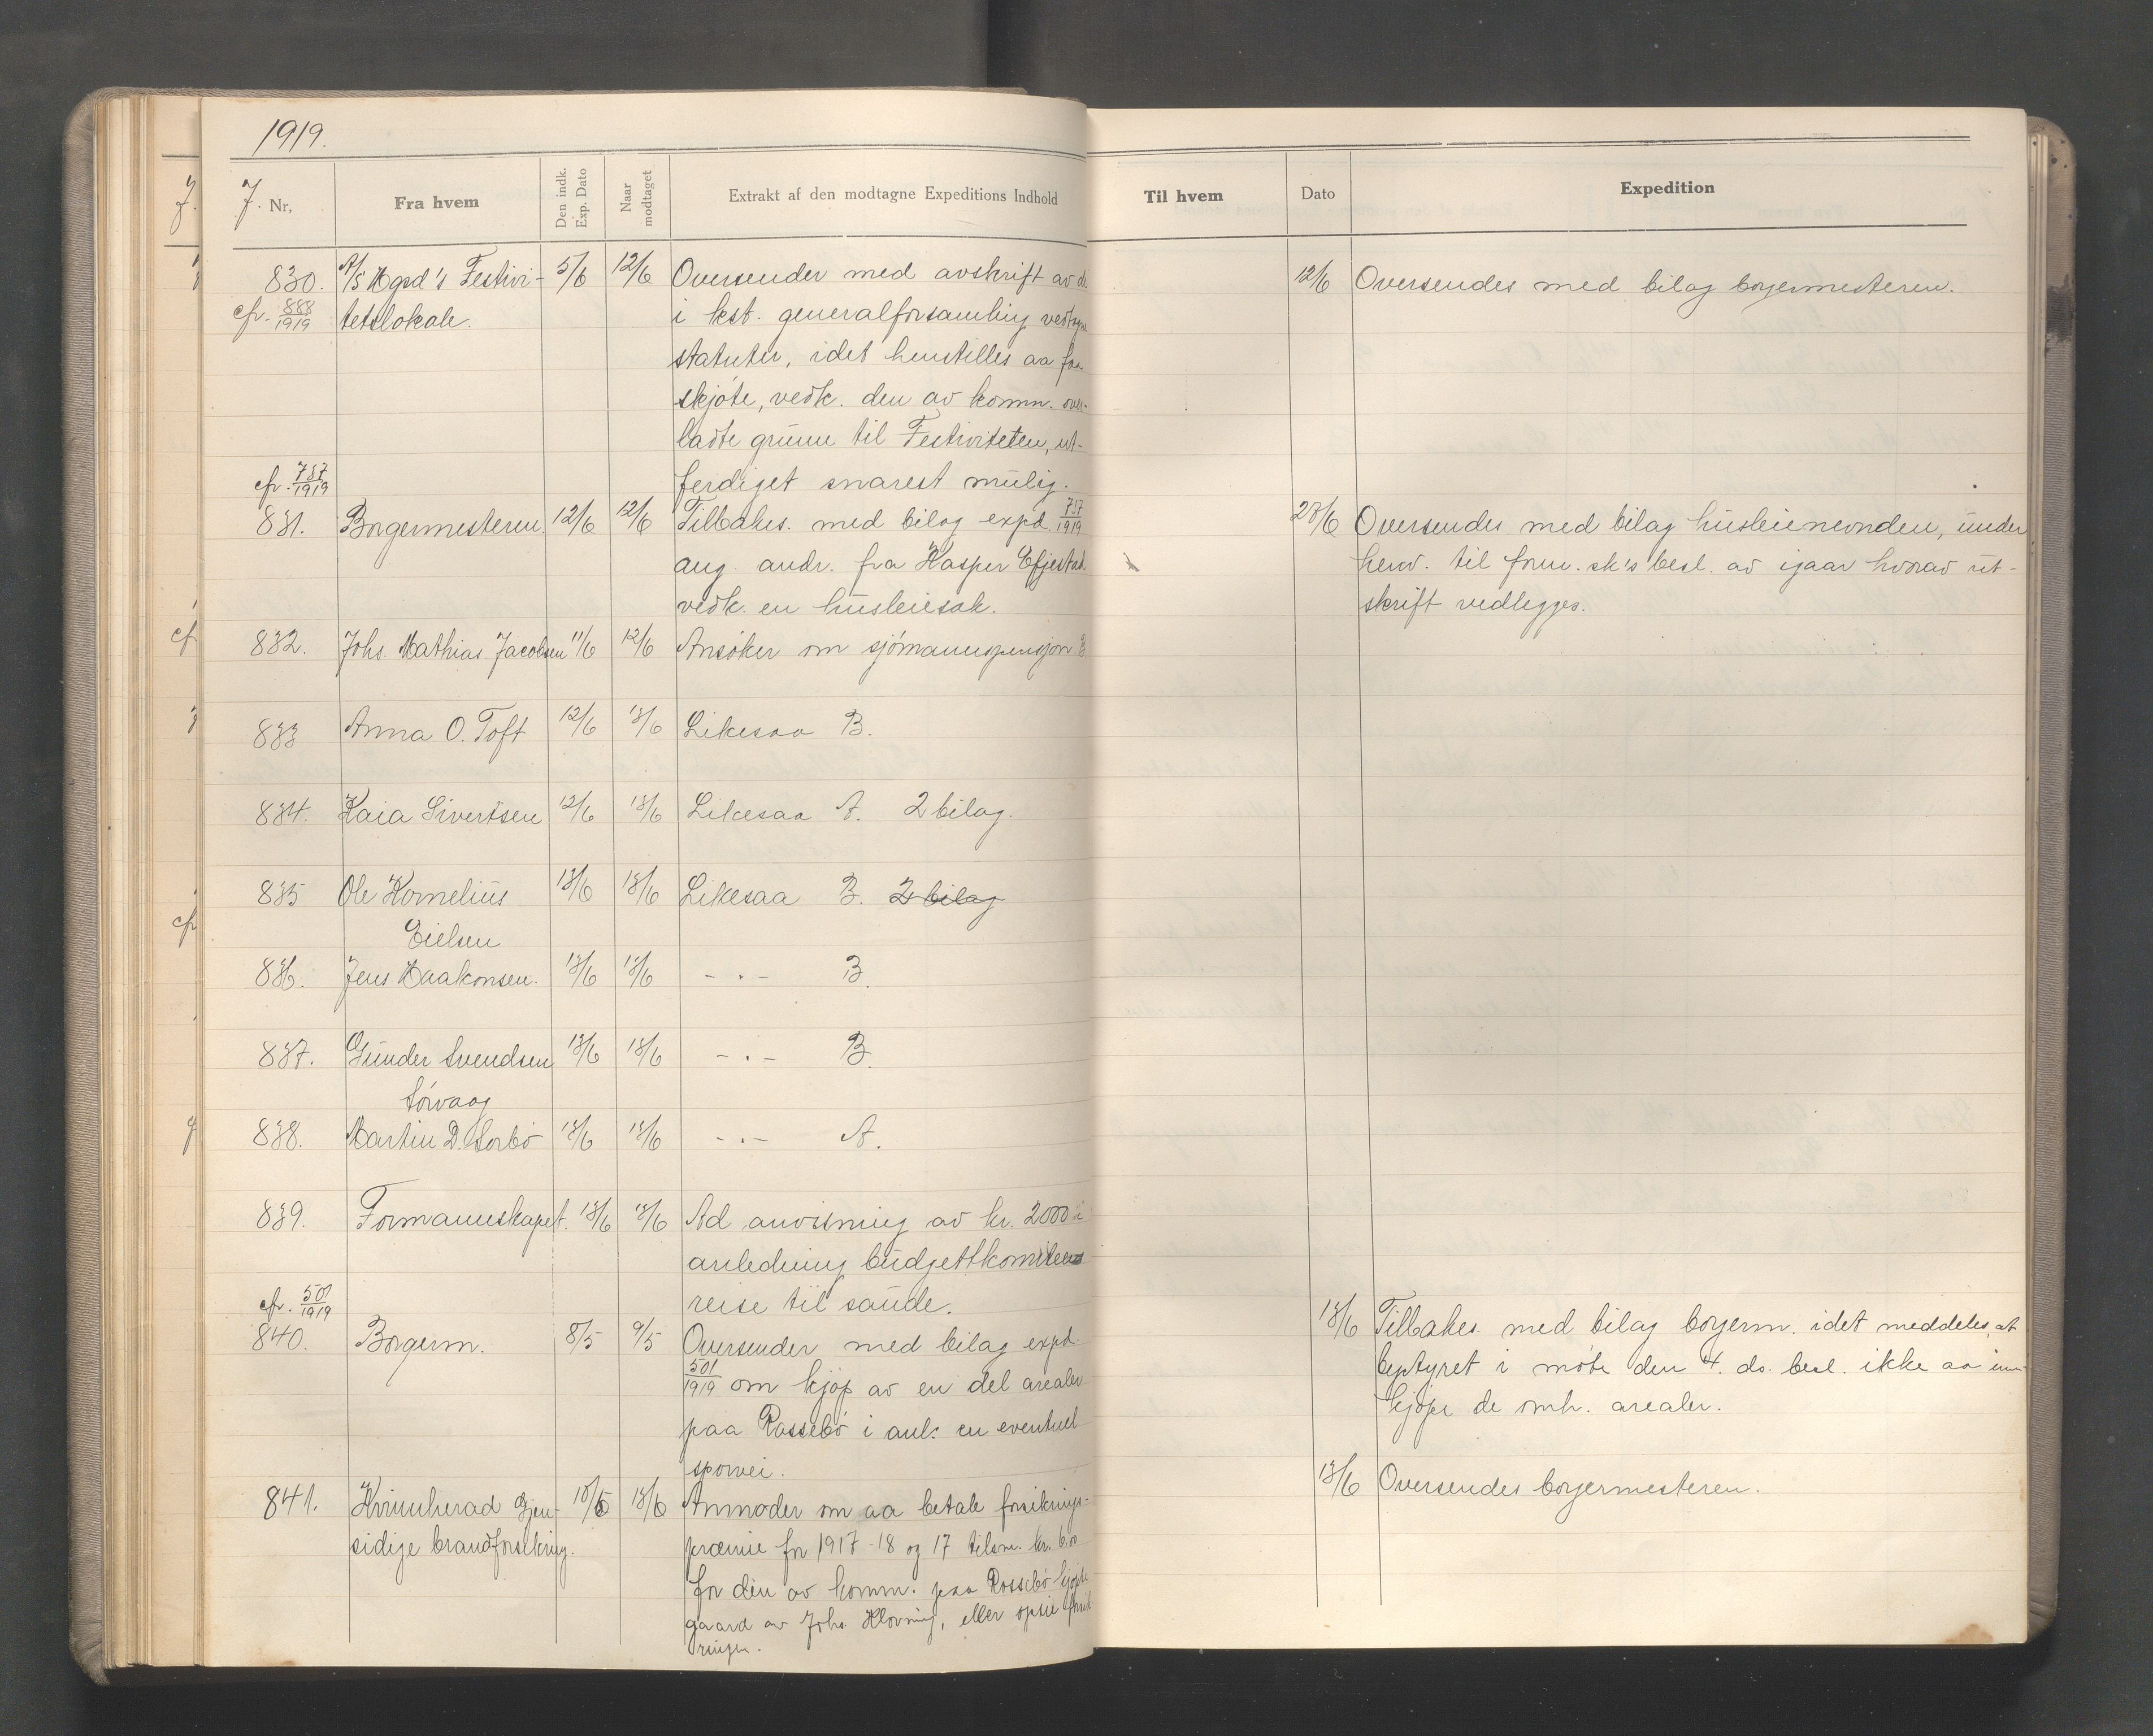 1919.
J. Nr.
Fra hvem
Den indk. Exp. Dato
Naar modtaget
Extrakt af den modtagne Expeditions Indhold
Til hvem
Dato
Expedition
830. A/S Hgsd's Festivi- 5/6 12/6 Oversender med avskrift av de 12/6 Oversendes med bilag borgermesteren.
cfr. 888/1919 tetslokale. i kst. generalforsamling vedtagne
statuter, idet henstilles aa faa
skjöte, vedk. den av komm. over-
ladte grunn til Festiviteten, ut-
cfr. 737/1919 ferdiget snarest mulig.
831. Borgermesteren. 12/6 12/6 Tilbakes. med bilag expd. 737/1919 28/6 Oversendes med bilag husleienevnden, under
ang. andr. fra Kasper Efjestad henv. til form.sk's besl. av igaar hvorav ut-
vedk. en husleiesak. skrift vedlegges.
832. Johs. Mathias Jacobsen 11/6 12/6 Ansöker om sjömannspensjon B
833 Anna O. Toft 12/6 13/6 Likesaa B.
834. Kaia Sivertsen 12/6 13/6 Likesaa A. 2 bilag.
835 Ole Kornelius 13/6 13/6 Likesaa B. 2 bilag
Eielsen
836. Jens Haakonsen. 13/6 13/6 - . - B.
837. Gunder Svendsen 13/6 13/6 - . - B.
Sörvaag
838. Martin D. Sorbö 13/6 13/6 - . - A.
839. Formannskapet. 13/6 13/6 Ad anvisning av kr. 2000 i
anledning budgettkomiteens
cfr. 501/1919 reise til saude.
840. Borgerm. 8/5 9/5 Oversender med bilag expd. 13/6 Tilbakes. med bilag borgerm. idet meddeles, at
501/1919 om kjöp av en del arealer i möte den 4. ds. besl. ikke aa inn-
paa Rossebö i anl. en eventuel kjöpe de omh. arealer.
sporvei.
841. Kvinnherad gjen- 10/6 13/6 Anmoder om aa betale forsikrings- 13/6 Oversendes borgermesteren.
sidige brandforsikring. præmie for 1917-18 og 17 tilsm. kr.
for den av komm. paa Rossebö kjöpte
gaard av Johs. eller opsie forsik
ringen.